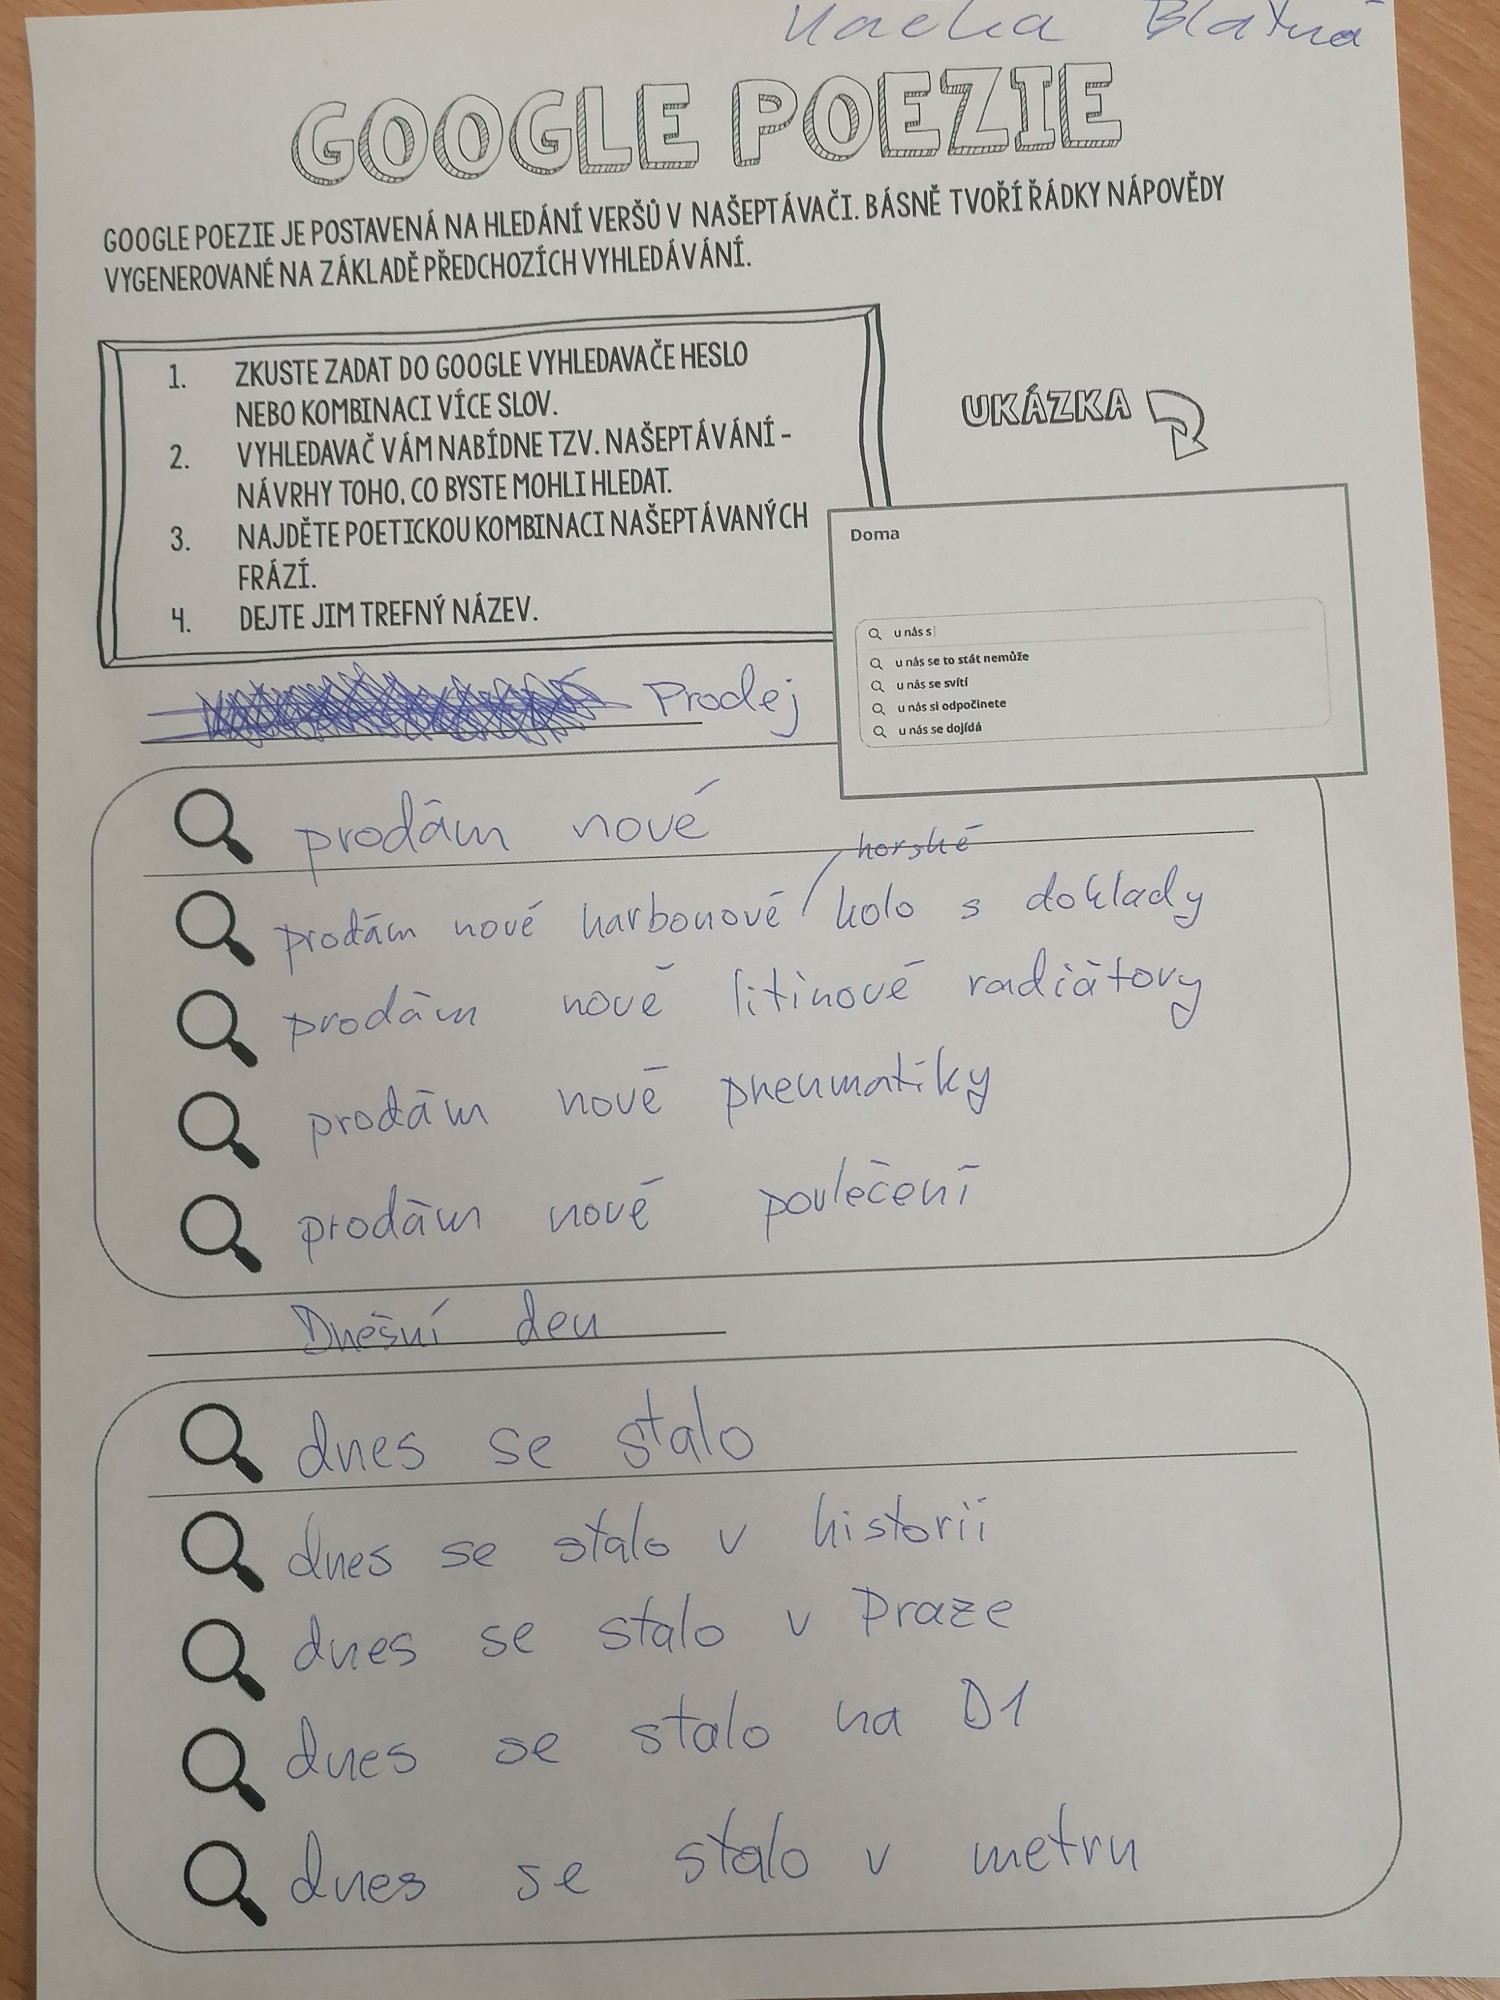 Blatná
GOOGLE POEZIE
GOOGLE POEZIE JE POSTAVENÁ NA HLEDÁNÍ VERŠŮ V NAŠEPTÁVAČI. BÁSNĚ TVOŘÍ ŘÁDKY NÁPOVĚDY
VYGENEROVANÉ NA ZÁKLADĚ PŘEDCHOZÍCH VYHLEDÁVÁNÍ.
1. ZKUSTE ZADAT DO GOOGLE VYHLEDAVAČE HESLO
NEBO KOMBINACI VÍCE SLOV.
2. VYHLEDAVAČ VÁM NABÍDNE TZV. NAŠEPTÁVÁNÍ -
NÁVRHY TOHO, CO BYSTE MOHLI HLEDAT.
3. NAJDĚTE POETICKOU KOMBINACI NAŠEPTÁVANÝCH
FRÁZÍ.
4. DEJTE JIM TREFNÝ NÁZEV.
UKÁZKA
Doma
u nás s
u nás se to stát nemůže
u nás se svítí
u nás si odpočinete
u nás se dojídá
Prodej
prodám nové
horské
prodám nové karbonové kolo s doklady
prodám nové litinové radiátory
prodám nové pneumatiky
prodám nové povlečení
Dnešní den
dnes se stalo
dnes se stalo v historii
dnes se stalo v Praze
dnes se stalo na D1
dnes se stalo v metru